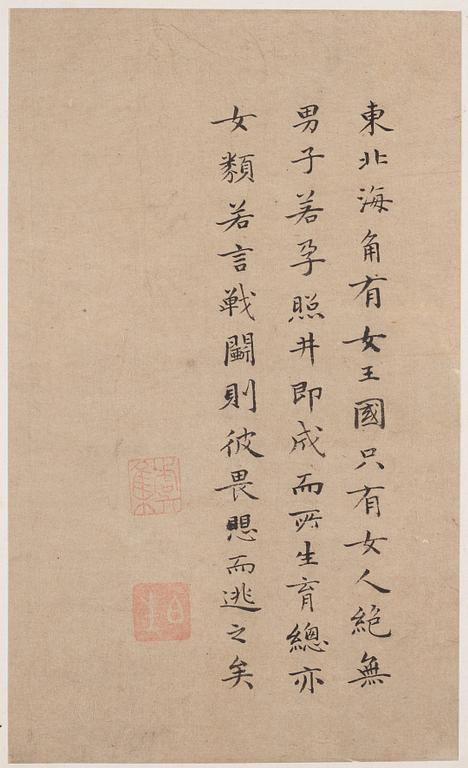 東北海角有女王國只有女人絕無
男子若孕照井即成而所生育總亦
女類若言戰鬪則彼畏思而逃之矣